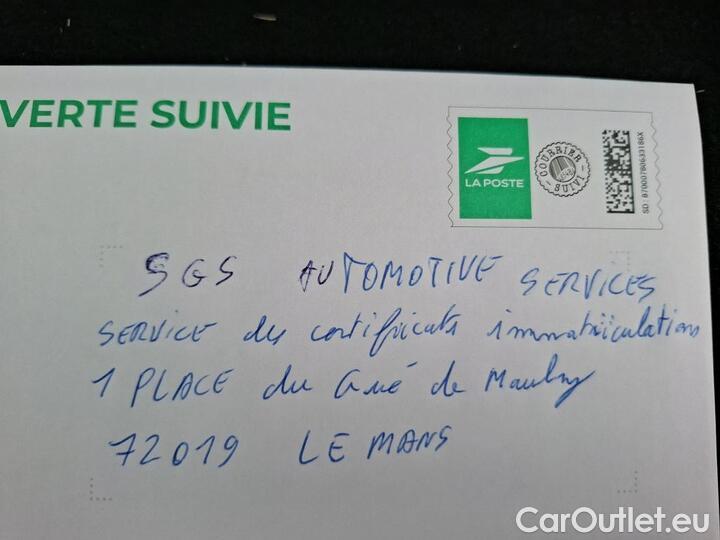 VERTE SUIVIE
LA POSTE
COURRIER SUIVI
SD : 87000780633186X
SGS AUTOMOTIVE SERVICES
SERVICE des certificats immatriculations
1 PLACE du Gué de Maulny
72019 LE MANS
CarOutlet.eu